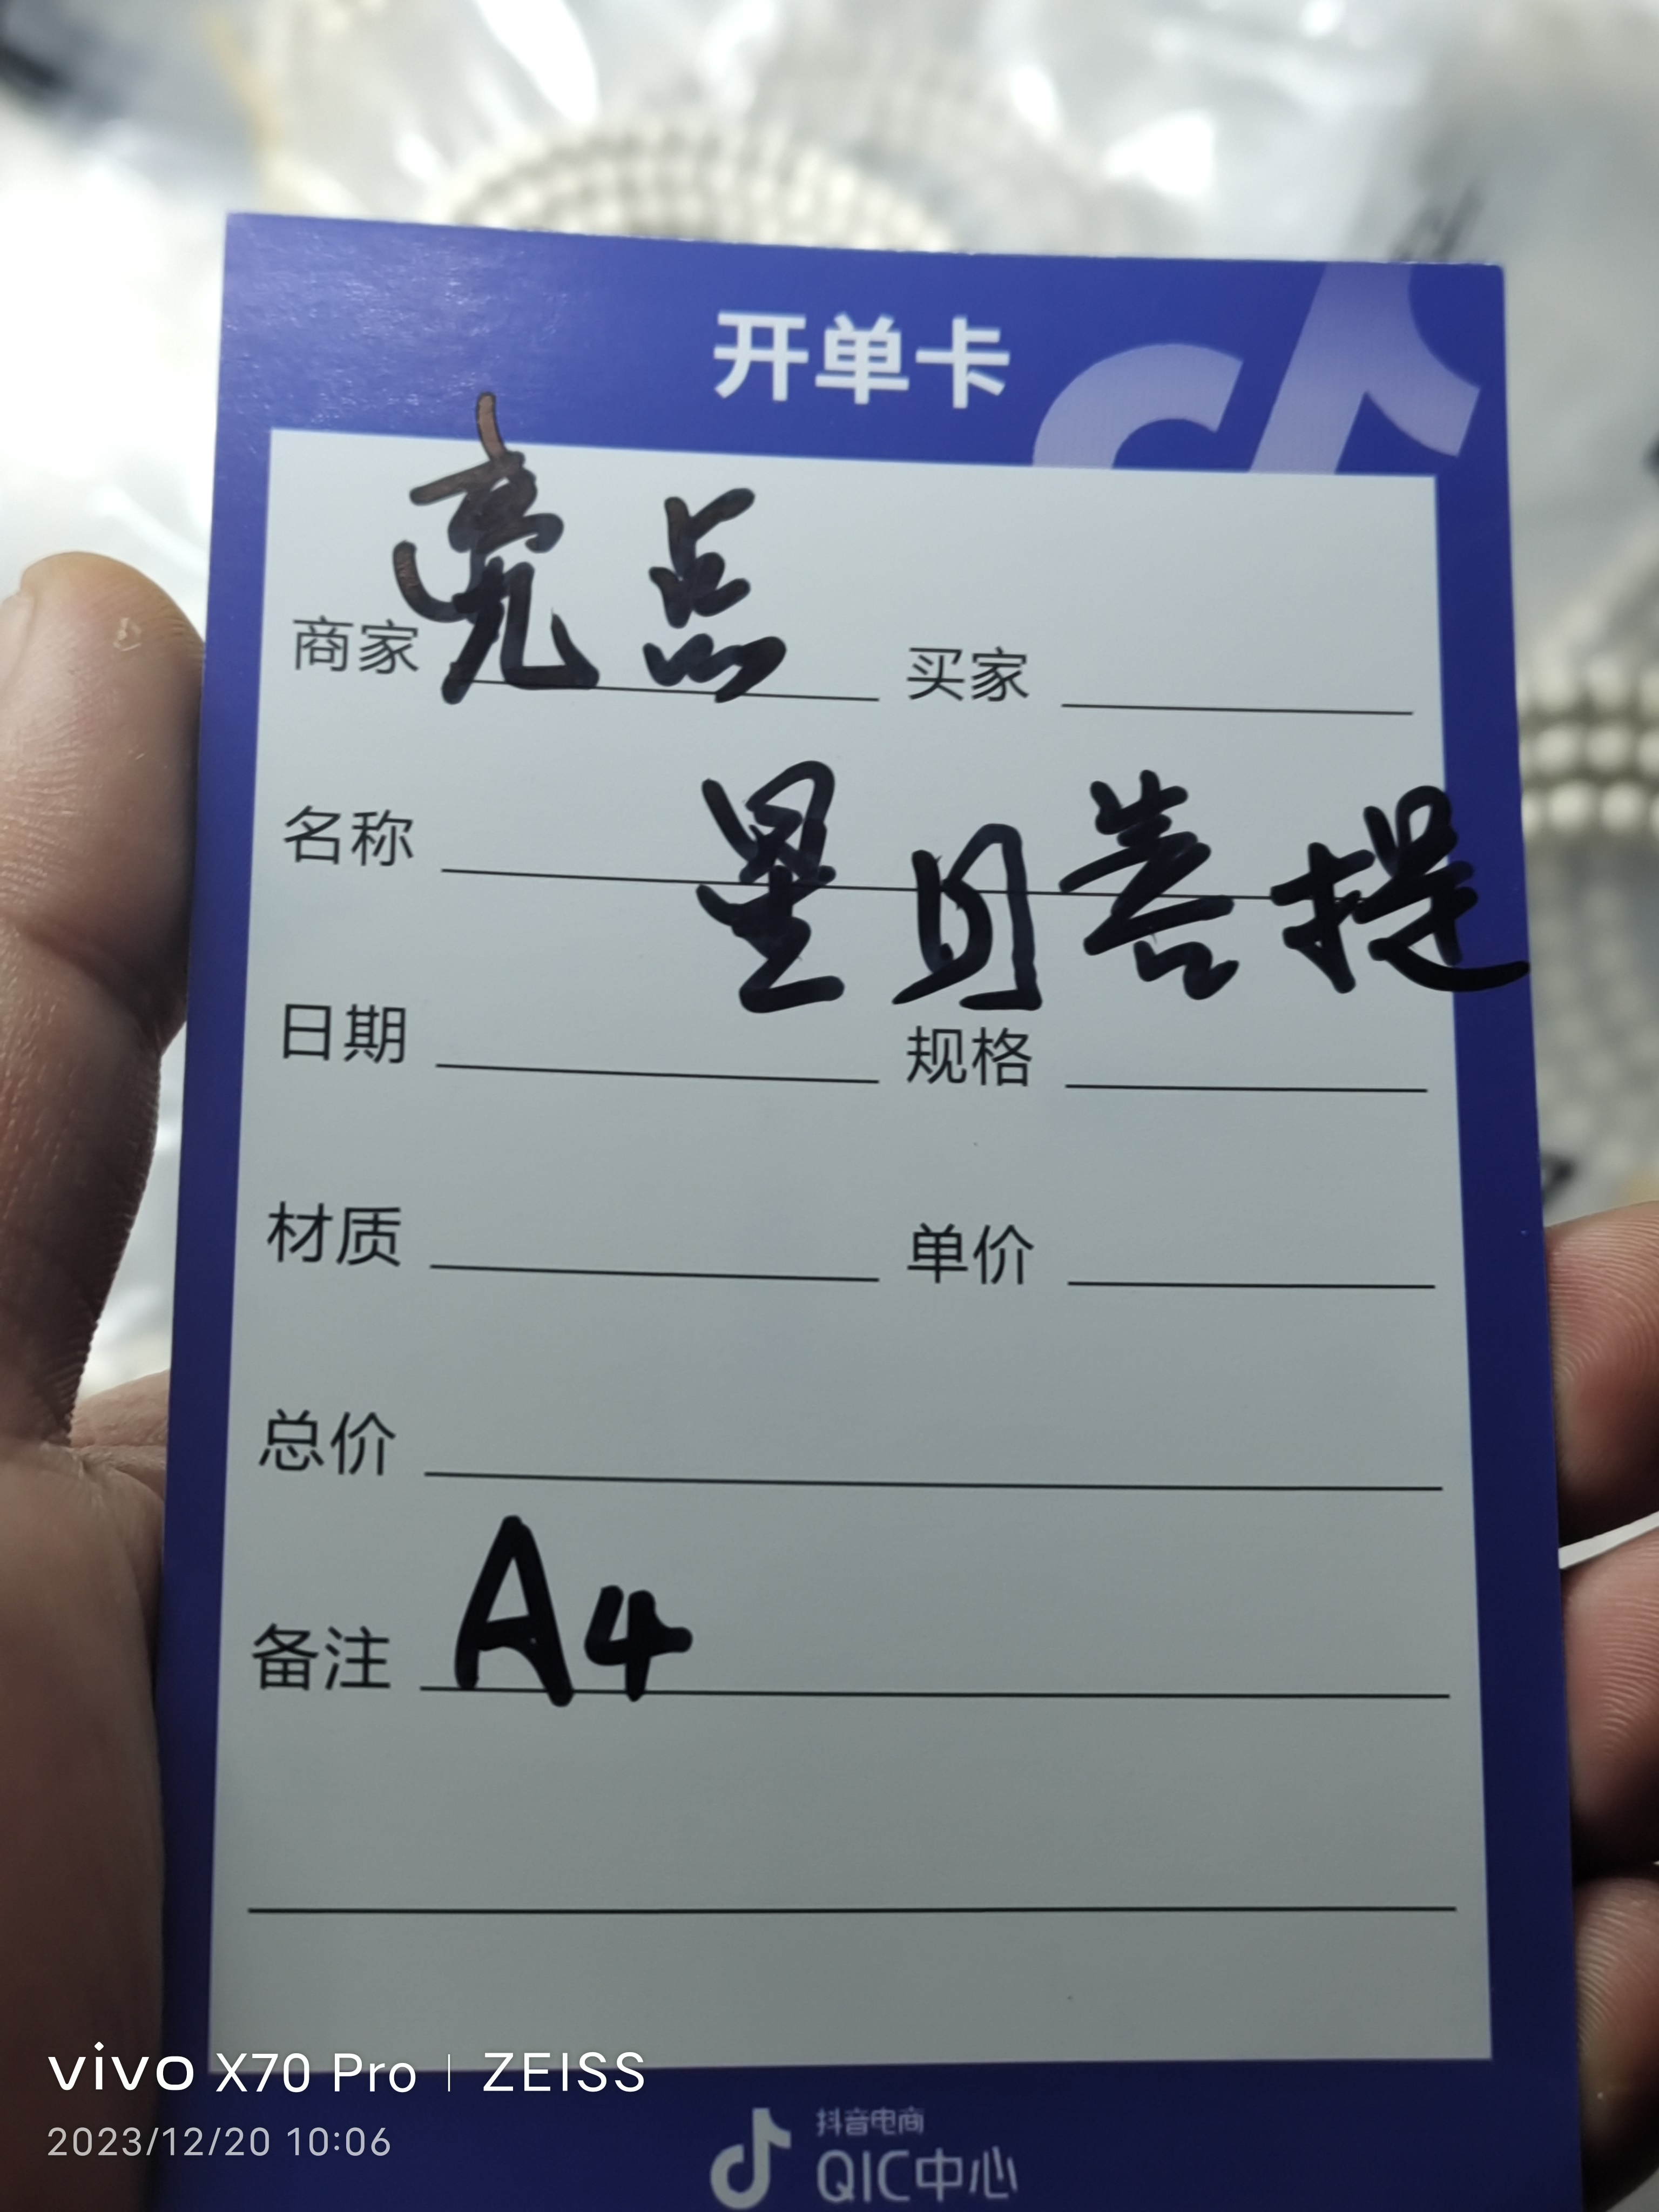 开单卡
商家 亮点 买家
名称 星月菩提
日期 规格
材质 单价
总价
备注 A4
抖音电商
QIC中心
vivo X70 Pro | ZEISS
2023/12/20 10:06